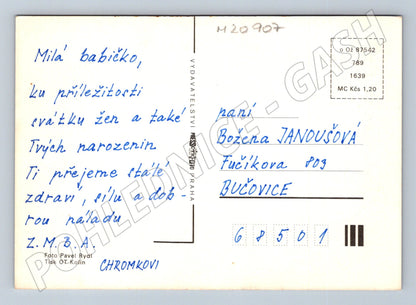 M20907
Milá babičko,
ku příležitosti
svátku žen a také
Tvých narozenin
Ti přejeme stálé
zdraví, sílu a dob
rou náladu
Z. M. B. A.
CHROMKOVI
Foto Pavel Rydl
Tisk OT Kolín
VYDAVATELSTVÍ
PRAHA
o Ož 87542
789
1639
MC Kčs 1,20
paní
Božena JANOUŠOVÁ
Fučíkova 803
BUČOVICE
68501
POHLEDNICE - GASH